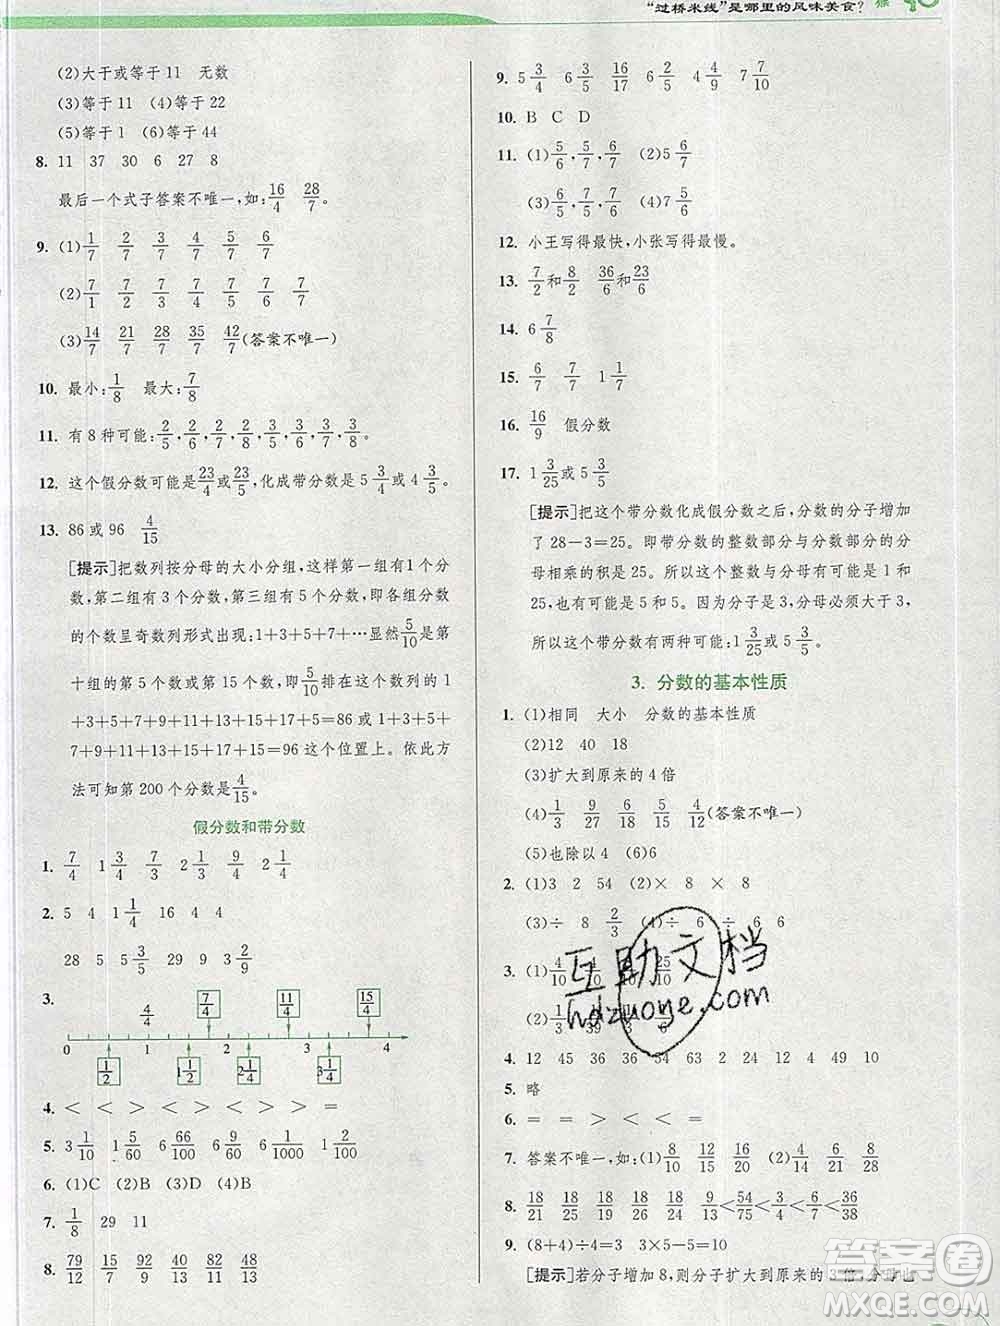 “过桥米线”是哪里的风味美食?
(2)大于或等于 11 无数
(3)等于 11 (4)等于 22
(5)等于 1 (6)等于 44
8. 11 37 30 6 27 8
最后一个式子答案不唯一,如:16/4 28/7。
9. (1)1/7 2/7 3/7 4/7 5/7 6/7
(2)7/1 7/2 7/3 7/4 7/5 7/6 7/7
(3)14/7 21/7 28/7 35/7 42/7(答案不唯一)
10. 最小:1/8 最大:7/8
11. 有 8 种可能:2/5,2/6,2/7,2/8,3/5,3/6,3/7,3/8。
12. 这个假分数可能是23/4或23/5,化成带分数是 5 3/4或 4 3/5。
13. 86 或 96 4/15
[提示]把数列按分母的大小分组,这样第一组有 1 个分
数,第二组有 3 个分数,第三组有 5 个分数,即各组分数
的个数呈奇数列形式出现:1+3+5+7+…显然5/10是第
十组的第 5 个数或第 15 个数,即5/10排在这个数列的 1
+3+5+7+9+11+13+15+17+5=86 或 1+3+5+
7+9+11+13+15+17+15=96 这个位置上。依此方
法可知第 200 个分数是4/15。
假分数和带分数
1. 7/4 1 3/4 7/3 2 1/3 9/4 2 1/4
2. 5 4 1 1/4 16 4 4
28 5 5 29 9 3 2/9
3. 4/4 7/4 11/4 15/4
0 1 2 3 4
1/2 1 1/2 2 1/4 3 1/4
4. < < > < > > > =
5. 3 1/10 1 5/60 6 66/100 6 9/60 1 1/1000 1 2/100
6. (1)C (2)B (3)A (4)B
7. 1/8 29 11
8. 79/12 15/7 92/9 131/13 82/9 48/13
9. 5 3/4 6 3/5 16/17 6 4/5 4/9 7 7/10
10. B C D
11. (1)5/6,5/7,6/7 (2)5 6/7
(3)6/5,7/5,7/6 (4)7 5/6
12. 小王写得最快,小张写得最慢。
13. 7/2和8/2 36/6和23/6
14. 6 7/8
15. 6/7 7/7 1 1/7
16. 16/9 假分数
17. 1 3/25或 5 3/5
[提示]把这个带分数化成假分数之后,分数的分子增加
了 28-3=25。即带分数的整数部分与分数部分的分
母相乘的积是 25。所以这个整数与分母可能是 1 和
25,也有可能是 5 和 5。因为分子是 3,分母必须大于 3,
所以这个带分数有两种可能:1 3/25或 5 3/5。
3. 分数的基本性质
1. (1)相同 大小 分数的基本性质
(2)12 40 18
(3)扩大到原来的 4 倍
(4)1/3 9/27 6/18 5/15 4/12(答案不唯一)
(5)也除以 4 (6)6
2. (1)3 2 54 (2)× 8 × 8
(3)÷ 8 2/3 (4)÷ 6 ÷ 6 6
3. (1)
(2)
互助文档
hdzuoye.com
4. 12 45 10 36 54 63 24 49 10
5. 略
6. = = > < < =
7. 答案不唯一,如:(1)8/10 12/15 16/20 (2)4/10 6/15 8/20
8. 18/21 18/25 18/24 9/12<54/75<3/4<6/7<36/38
9. (8+4)÷4=3 3×5-5=10
[提示]若分子增加 8,则分子扩大到原来的 3 倍,分母也
答案圈
MXQE.COM